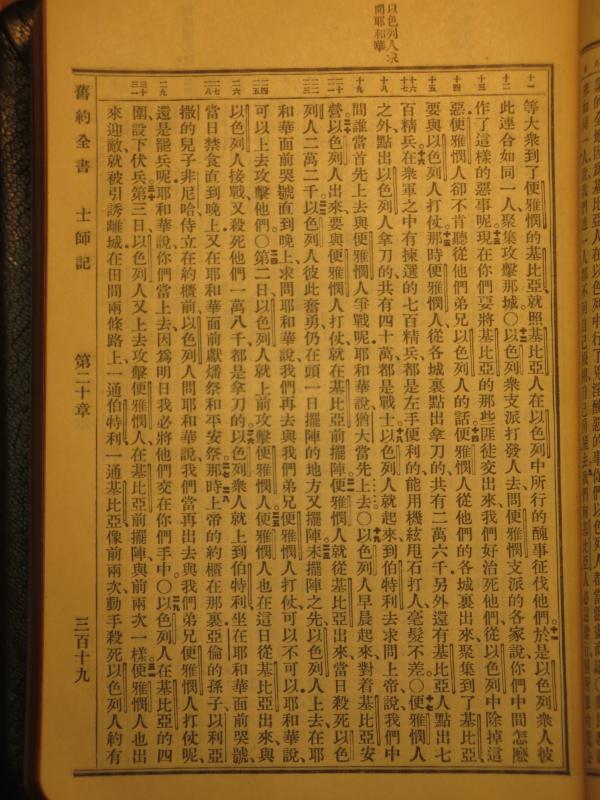 以色列人求
問耶和華
等大衆到了便雅憫的基比亞就照基比亞人在以色列中所行的醜事征伐他們於是以色列衆人彼
此連合如同一人聚集攻擊那城〇以色列衆支派打發人去問便雅憫支派的各家說你們中間怎麽
作了這樣的惡事呢現在你們要將基比亞的那些匪徒交出來我們好治死他們從以色列中除掉這
惡便雅憫人卻不肯聽從他們弟兄以色列人的話便雅憫人從他們的各城裏出來聚集到了基比亞
要與以色列人打仗那時便雅憫人從各城裏點出拿刀的共有二萬六千另外還有基比亞人點出七
百精兵在衆軍之中有揀選的七百精兵都是左手便利的能用機絃甩石打人毫髮不差〇便雅憫人
之外點出以色列人拿刀的共有四十萬都是戰士以色列人就起來到伯特利去求問上帝說我們中
間誰當首先上去與便雅憫人爭戰呢耶和華說猶大當先上去〇以色列人早晨起來對着基比亞安
營以色列人出來要與便雅憫人打仗就在基比亞前擺陣便雅憫人就從基比亞出來當日殺死以色
列人二萬二千以色列人彼此奮勇仍在頭一日擺陣的地方又擺陣未擺陣之先以色列人上去在耶
和華面前哭號直到晚上求問耶和華說我們再去與我們弟兄便雅憫人打仗可以不可以耶和華說
可以上去攻擊他們〇第二日以色列人就上前攻擊便雅憫人便雅憫人也在這日從基比亞出來與
以色列人接戰又殺死他們一萬八千都是拿刀的以色列衆人就上到伯特利坐在耶和華面前哭號
當日禁食直到晚上又在耶和華面前獻燔祭和平安祭那時上帝的約櫃在那裏亞倫的孫子以利亞
撒的兒子非尼哈侍立在約櫃前以色列人問耶和華說我們當再出去與我們弟兄便雅憫人打仗呢
還是罷兵呢耶和華說你們當上去因爲明日我必將他們交在你們手中〇以色列人在基比亞的四
圍設下伏兵第三日以色列人又上去攻擊便雅憫人在基比亞前擺陣與前兩次一樣便雅憫人也出
來迎敵就被引誘離城在田間兩條路上一通伯特利一通基比亞像前兩次動手殺死以色列人約有
舊約全書 士師記 第二十章 三百十九